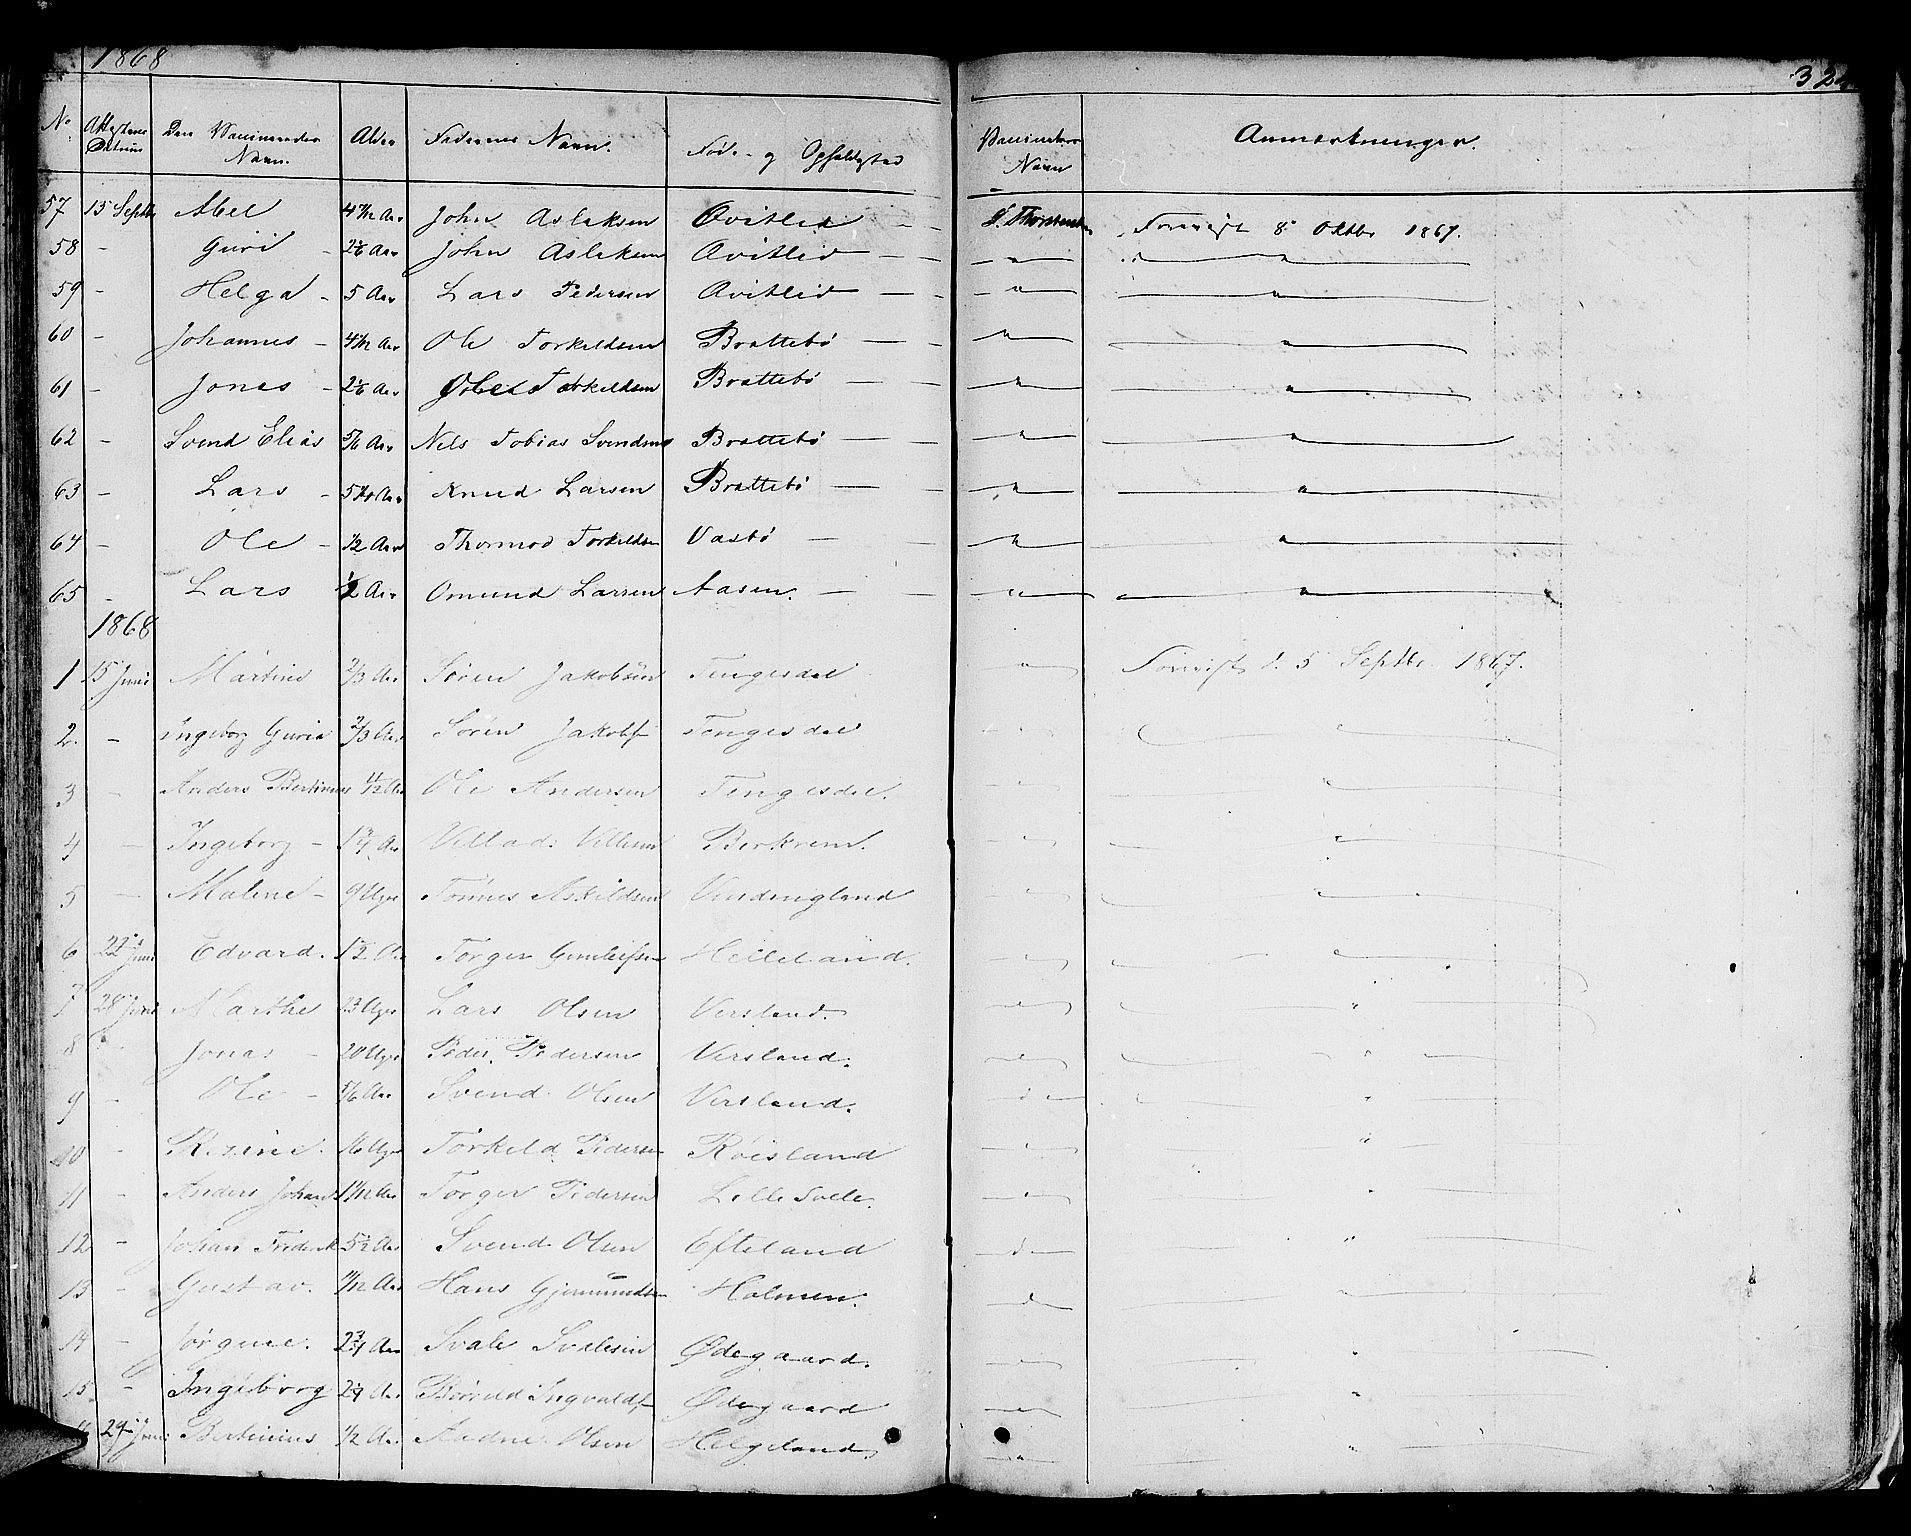 1868
324
No Attestens Datum Den Vaccineredes Navn. Alder Faderens Navn. Føde- og Opholdsted Vaccinators Navn Anmærkninger.
57 15 Septbr Abel 4 Aar John Aslaksen Øvitlid — — Forevist 8 Oktbr 1867.
58 - Guri - 2 1/6 Aar John Aslaksen Øvitlid — — — " — — " —
59 - Helga - 5 Aar Lars Pedersen Øvitlid — — — " — — " —
60 - Johannes - Aar Ole Torkeldsen Brattebø — — — " — — " —
61 - Jonas - 2 1/6 Aar Ole Torkeldsen Brattebø — — — " — — " —
62 - Svend Elias 5/6 Aar Nils Tobias Svendsen Brattebø — — — " — — " —
63 - Lars - Aar Knud Larsen Brattebø — — — " — — " —
64 - Ole - 1/2 Aar Thormod Torkeldsen Vasbø — — — " — — " —
65 - Lars 1/2 Aar Omund Larsen Aasen. — — — " — — " —
1868
1 15 Juni Martine 2/3 Aar Sören Jakobsen Tengesdal — " — Forevist d. 5 Septbr. 1867.
2. - Ingeborg Guria 2/3 Aar Sören Jakobs Tengesdal
3 - Anders Bertinius 11/12 Aar Ole Andersen Tengesdal.
4 - Ingeborg - 1 3/4 Aar Villads Villesen Berkrem.
5 - Malene - 9 Uger Tönnes Askildsen
6 22 Juni Edvard. 1 1/2 Aar Torger Gunleifsen Helleland.
7 28 Juni Marthe 13 Uger Lars Olsen Versland.
8 - Jonas - 20 Uger Peder Pedersen Versland.
9 - Ole - 5/6 Aar Svend Olsen Versland.
10 - Rasine. 16 Uger Torkeld Pedersen Röisland
11 - Anders Johan Aar Torger Pedersen Lille Svele.
12 - Johan Fredrik 5 1/2 Aar Svend Olsen Efteland
13 - Gustav. 11/12 Aar Hans Gjermundsen Holmen.
14 - Jørgine. 2 3/4 Aar Svale Svalesen Ødegaard.
15 - Ingeborg 2 Aar Ingvalds Ødegaard
29 Juni Bertinius 1/2 Aar Andne Olsen Helgeland,